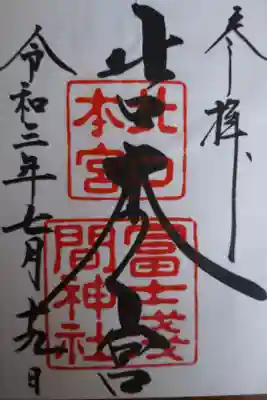 参拝
北口本宮
令和三年七月十九日
北口
本宮
冨士淺
間神社